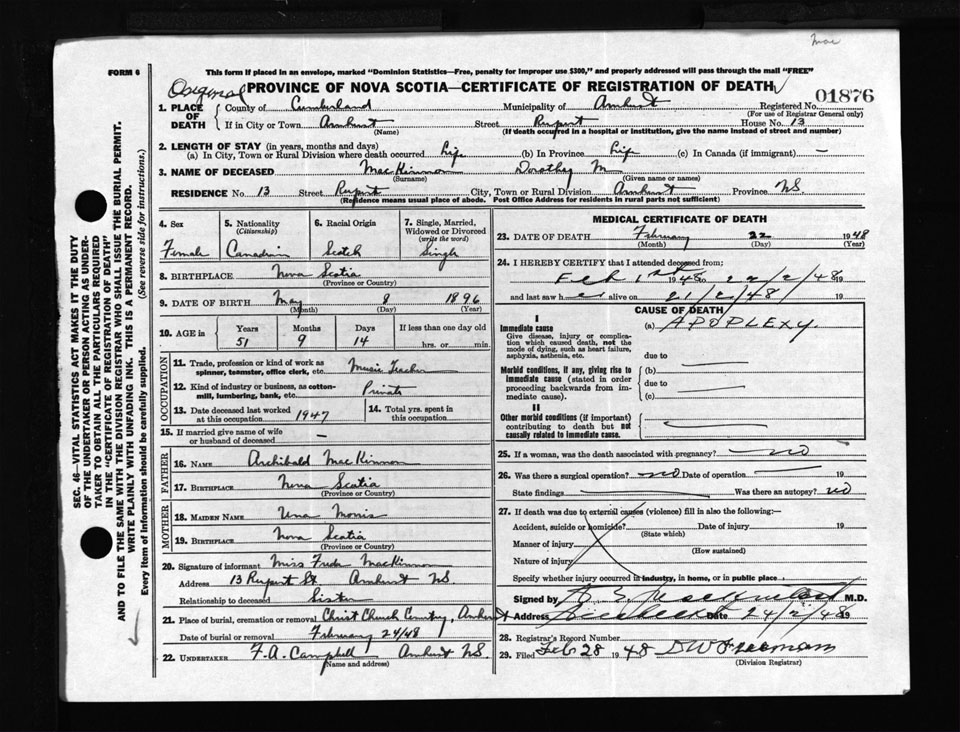 mac
FORM 6
This form if placed in an envelope, marked "Dominion Statistics—Free, penalty for improper use $300," and properly addressed will pass through the mail "FREE"
Original PROVINCE OF NOVA SCOTIA—CERTIFICATE OF REGISTRATION OF DEATH
01876
1. PLACE OF DEATH County of Cumberland Municipality of Amherst Registered No.
(For use of Registrar General only)
If in City or Town Amherst Street Rupert House No. 13
(Name) (If death occurred in a hospital or institution, give the name instead of street and number)
2. LENGTH OF STAY (in years, months and days)
(a) In City, Town or Rural Division where death occurred Life (b) In Province Life (c) In Canada (if immigrant) —
3. NAME OF DECEASED MacKinnon Dorothy M
(Surname) (Given name or names)
RESIDENCE No. 13 Street Rupert City, Town or Rural Division Amherst Province NS
(Residence means usual place of abode. Post Office Address for residents in rural parts not sufficient)
4. Sex Female
5. Nationality (Citizenship) Canadian
6. Racial Origin Scotch
7. Single, Married, Widowed or Divorced (write the word) Single
8. BIRTHPLACE Nova Scotia
(Province or Country)
9. DATE OF BIRTH May 8 1896
(Month) (Day) (Year)
10. AGE in Years Months Days If less than one day old
51 9 14 hrs. or min.
OCCUPATION
11. Trade, profession or kind of work as spinner, teamster, office clerk, etc. Music Teacher
12. Kind of industry or business, as cotton-mill, lumbering, bank, etc. Private
13. Date deceased last worked at this occupation 1947
14. Total yrs. spent in this occupation
15. If married give name of wife or husband of deceased —
FATHER
16. NAME Archibald MacKinnon
17. BIRTHPLACE Nova Scotia
(Province or Country)
MOTHER
18. MAIDEN NAME Una Morris
19. BIRTHPLACE Nova Scotia
(Province or Country)
20. Signature of informant Miss Freda MacKinnon
Address 13 Rupert St. Amherst NS
Relationship to deceased Sister
21. Place of burial, cremation or removal Christ Church Cemetery, Amherst
Date of burial or removal February 24/48
22. UNDERTAKER F.A. Campbell Amherst NS.
(Name and address)
MEDICAL CERTIFICATE OF DEATH
23. DATE OF DEATH February 22 1948
(Month) (Day) (Year)
24. I HEREBY CERTIFY that I attended deceased from:
Feb 1st 1948 22/2/48 19
and last saw her alive on 21/2/48 19
CAUSE OF DEATH
I
Immediate cause
Give disease, injury or complication which caused death, not the mode of dying, such as heart failure, asphyxia, asthenia, etc.
(a) APOPLEXY.
due to
Morbid conditions, if any, giving rise to immediate cause (stated in order proceeding backwards from immediate cause).
(b)
due to
(c)
II
Other morbid conditions (if important) contributing to death but not causally related to immediate cause.
25. If a woman, was the death associated with pregnancy? no
26. Was there a surgical operation? no Date of operation 19
State findings Was there an autopsy? no
27. If death was due to external causes (violence) fill in also the following:—
Accident, suicide or homicide? Date of injury 19
(State which)
Manner of injury
(How sustained)
Nature of injury
Specify whether injury occurred in industry, in home, or in public place
Signed by M.D.
Address Date 24/2/48 19
28. Registrar's Record Number
29. Filed Feb 28 1948 D W Freeman
(Division Registrar)
SEC. 46—VITAL STATISTICS ACT MAKES IT THE DUTY
OF THE UNDERTAKER OR PERSON ACTING AS UNDERTAKER TO OBTAIN ALL THE PARTICULARS REQUIRED
IN THE "CERTIFICATE OF REGISTRATION OF DEATH"
AND TO FILE THE SAME WITH THE DIVISION REGISTRAR WHO SHALL ISSUE THE BURIAL PERMIT.
WRITE PLAINLY WITH UNFADING INK. THIS IS A PERMANENT RECORD.
Every item of information should be carefully supplied. (See reverse side for instructions.)